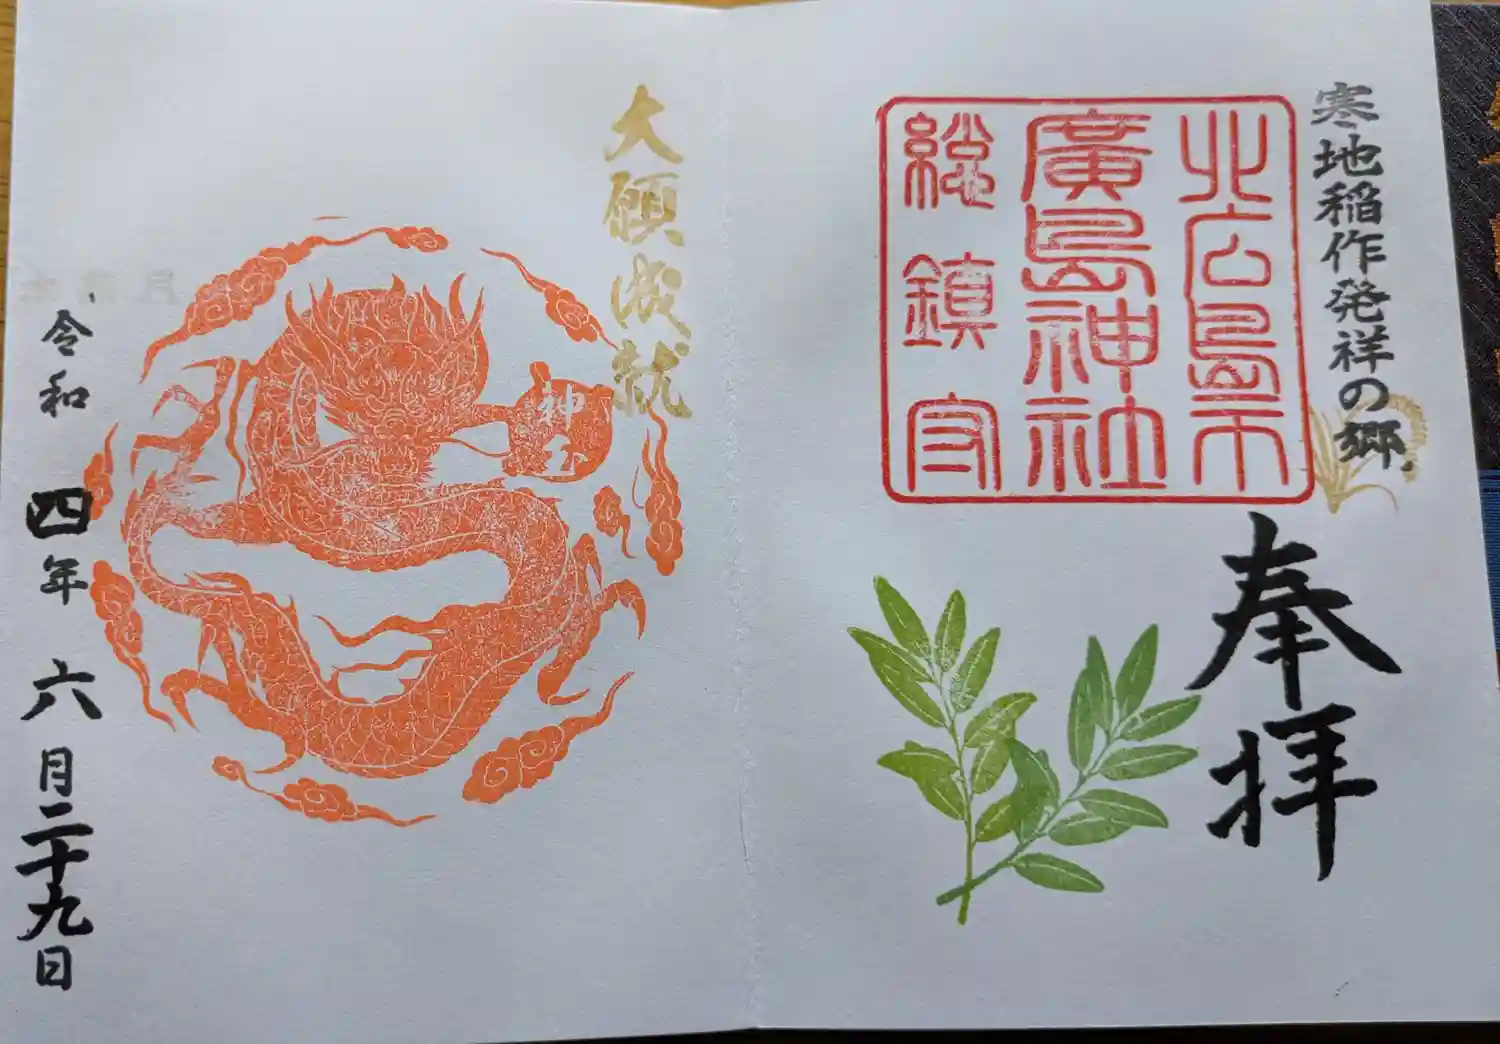 寒地稲作発祥の郷
北広島市
廣島神社
総鎮守
奉拝
大願成就
神玉
令和四年六月二十九日